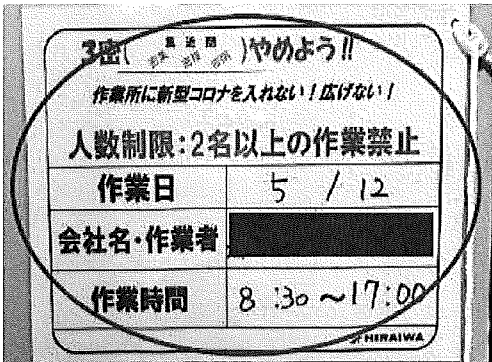 3密(密集 密接 密閉)やめよう!!
作業所に新型コロナを入れない!広げない!
人数制限:2名以上の作業禁止
作業日 5 / 12
会社名・作業者
作業時間 8:30~17:00
HIRAIWA